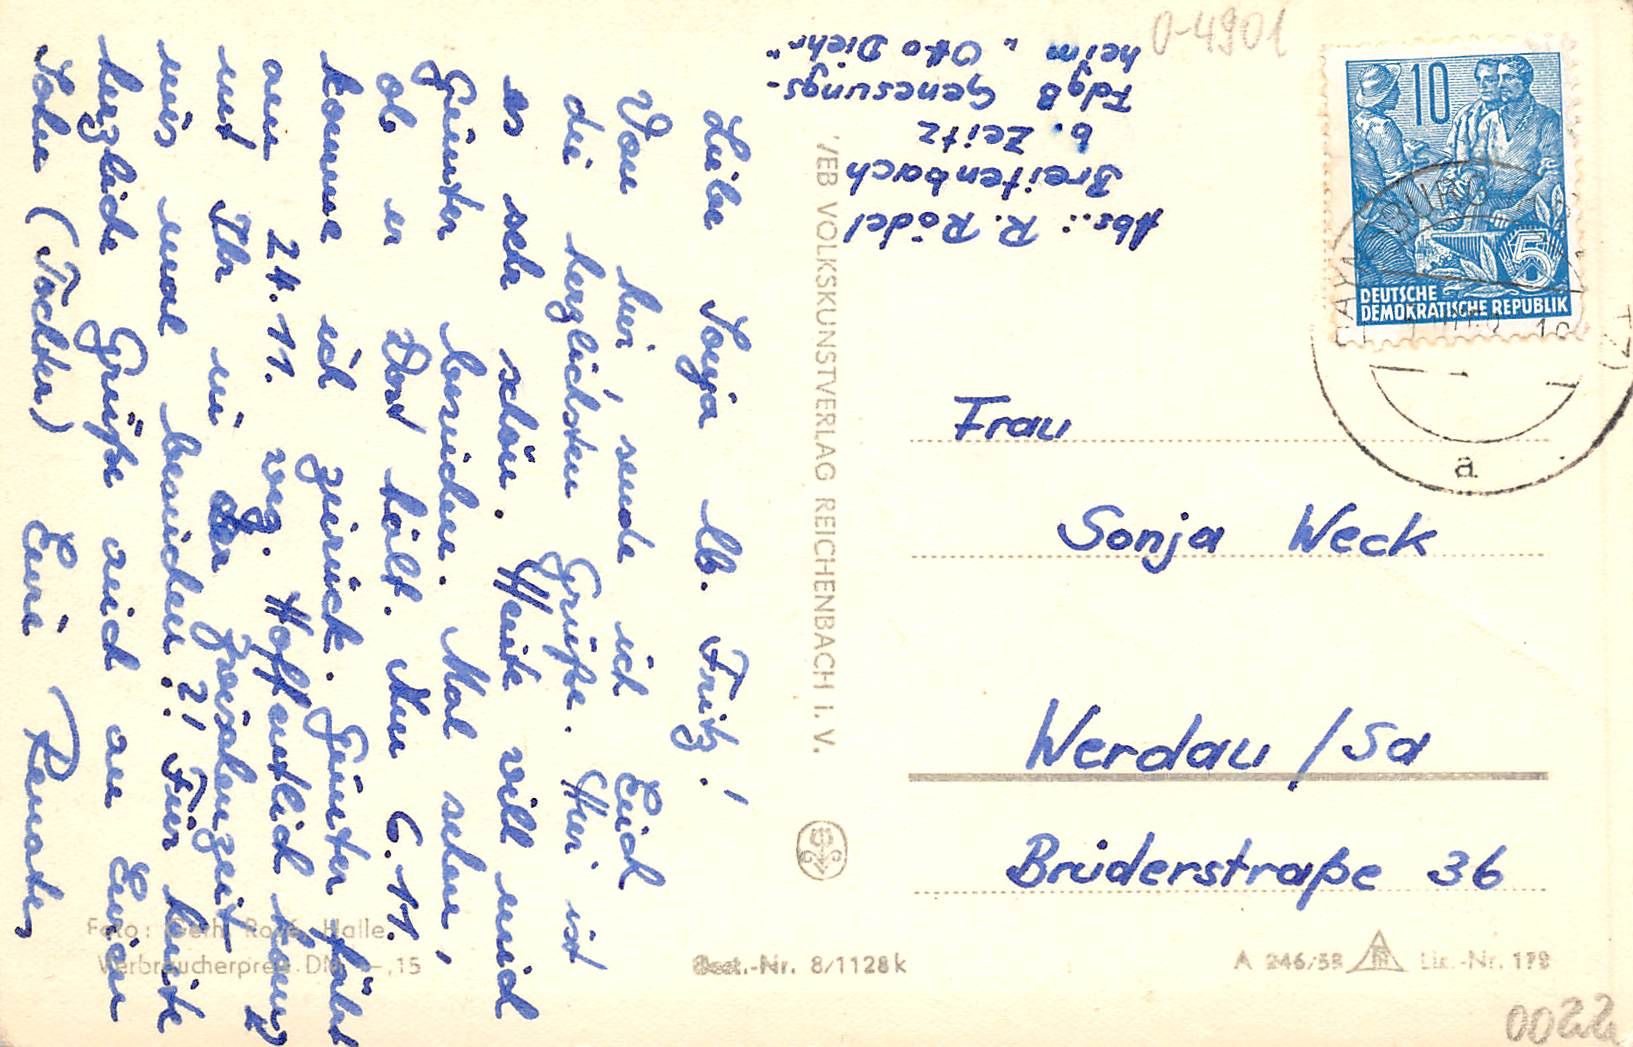 Liebe Sonja lb. Fritz!
Von hier sende ich Euch
die herzlichsten Grüße. Hier ist
es sehr schön. Heute will mich
Günter besuchen. Mal sehen,
ob er Wort hält. Am 6.11.
komme ich zurück. Günter fährt
am 24.11. weg. Hoffentlich kann
uns Ihr in der Zwischenzeit
uns mal besuchen?! Für heute
herzliche Grüße auch an Euren
Sohn (Tochter) Eure Renate
Abs.: R. Rödel
Breitenbach
b. Zeitz
FdgB Genesungs-
heim "Otto Diehr"
0-4901
10
5
DEUTSCHE
DEMOKRATISCHE REPUBLIK
BURG
a
Frau
Sonja Weck
Werdau /Sa
Brüderstraße 36
VEB VOLKSKUNSTVERLAG REICHENBACH I. V.
Foto: Gerh. Halle
Verbraucherpreis DM -,15
Best.-Nr. 8/1128k
A 246/58 Liz.-Nr. 178
0022